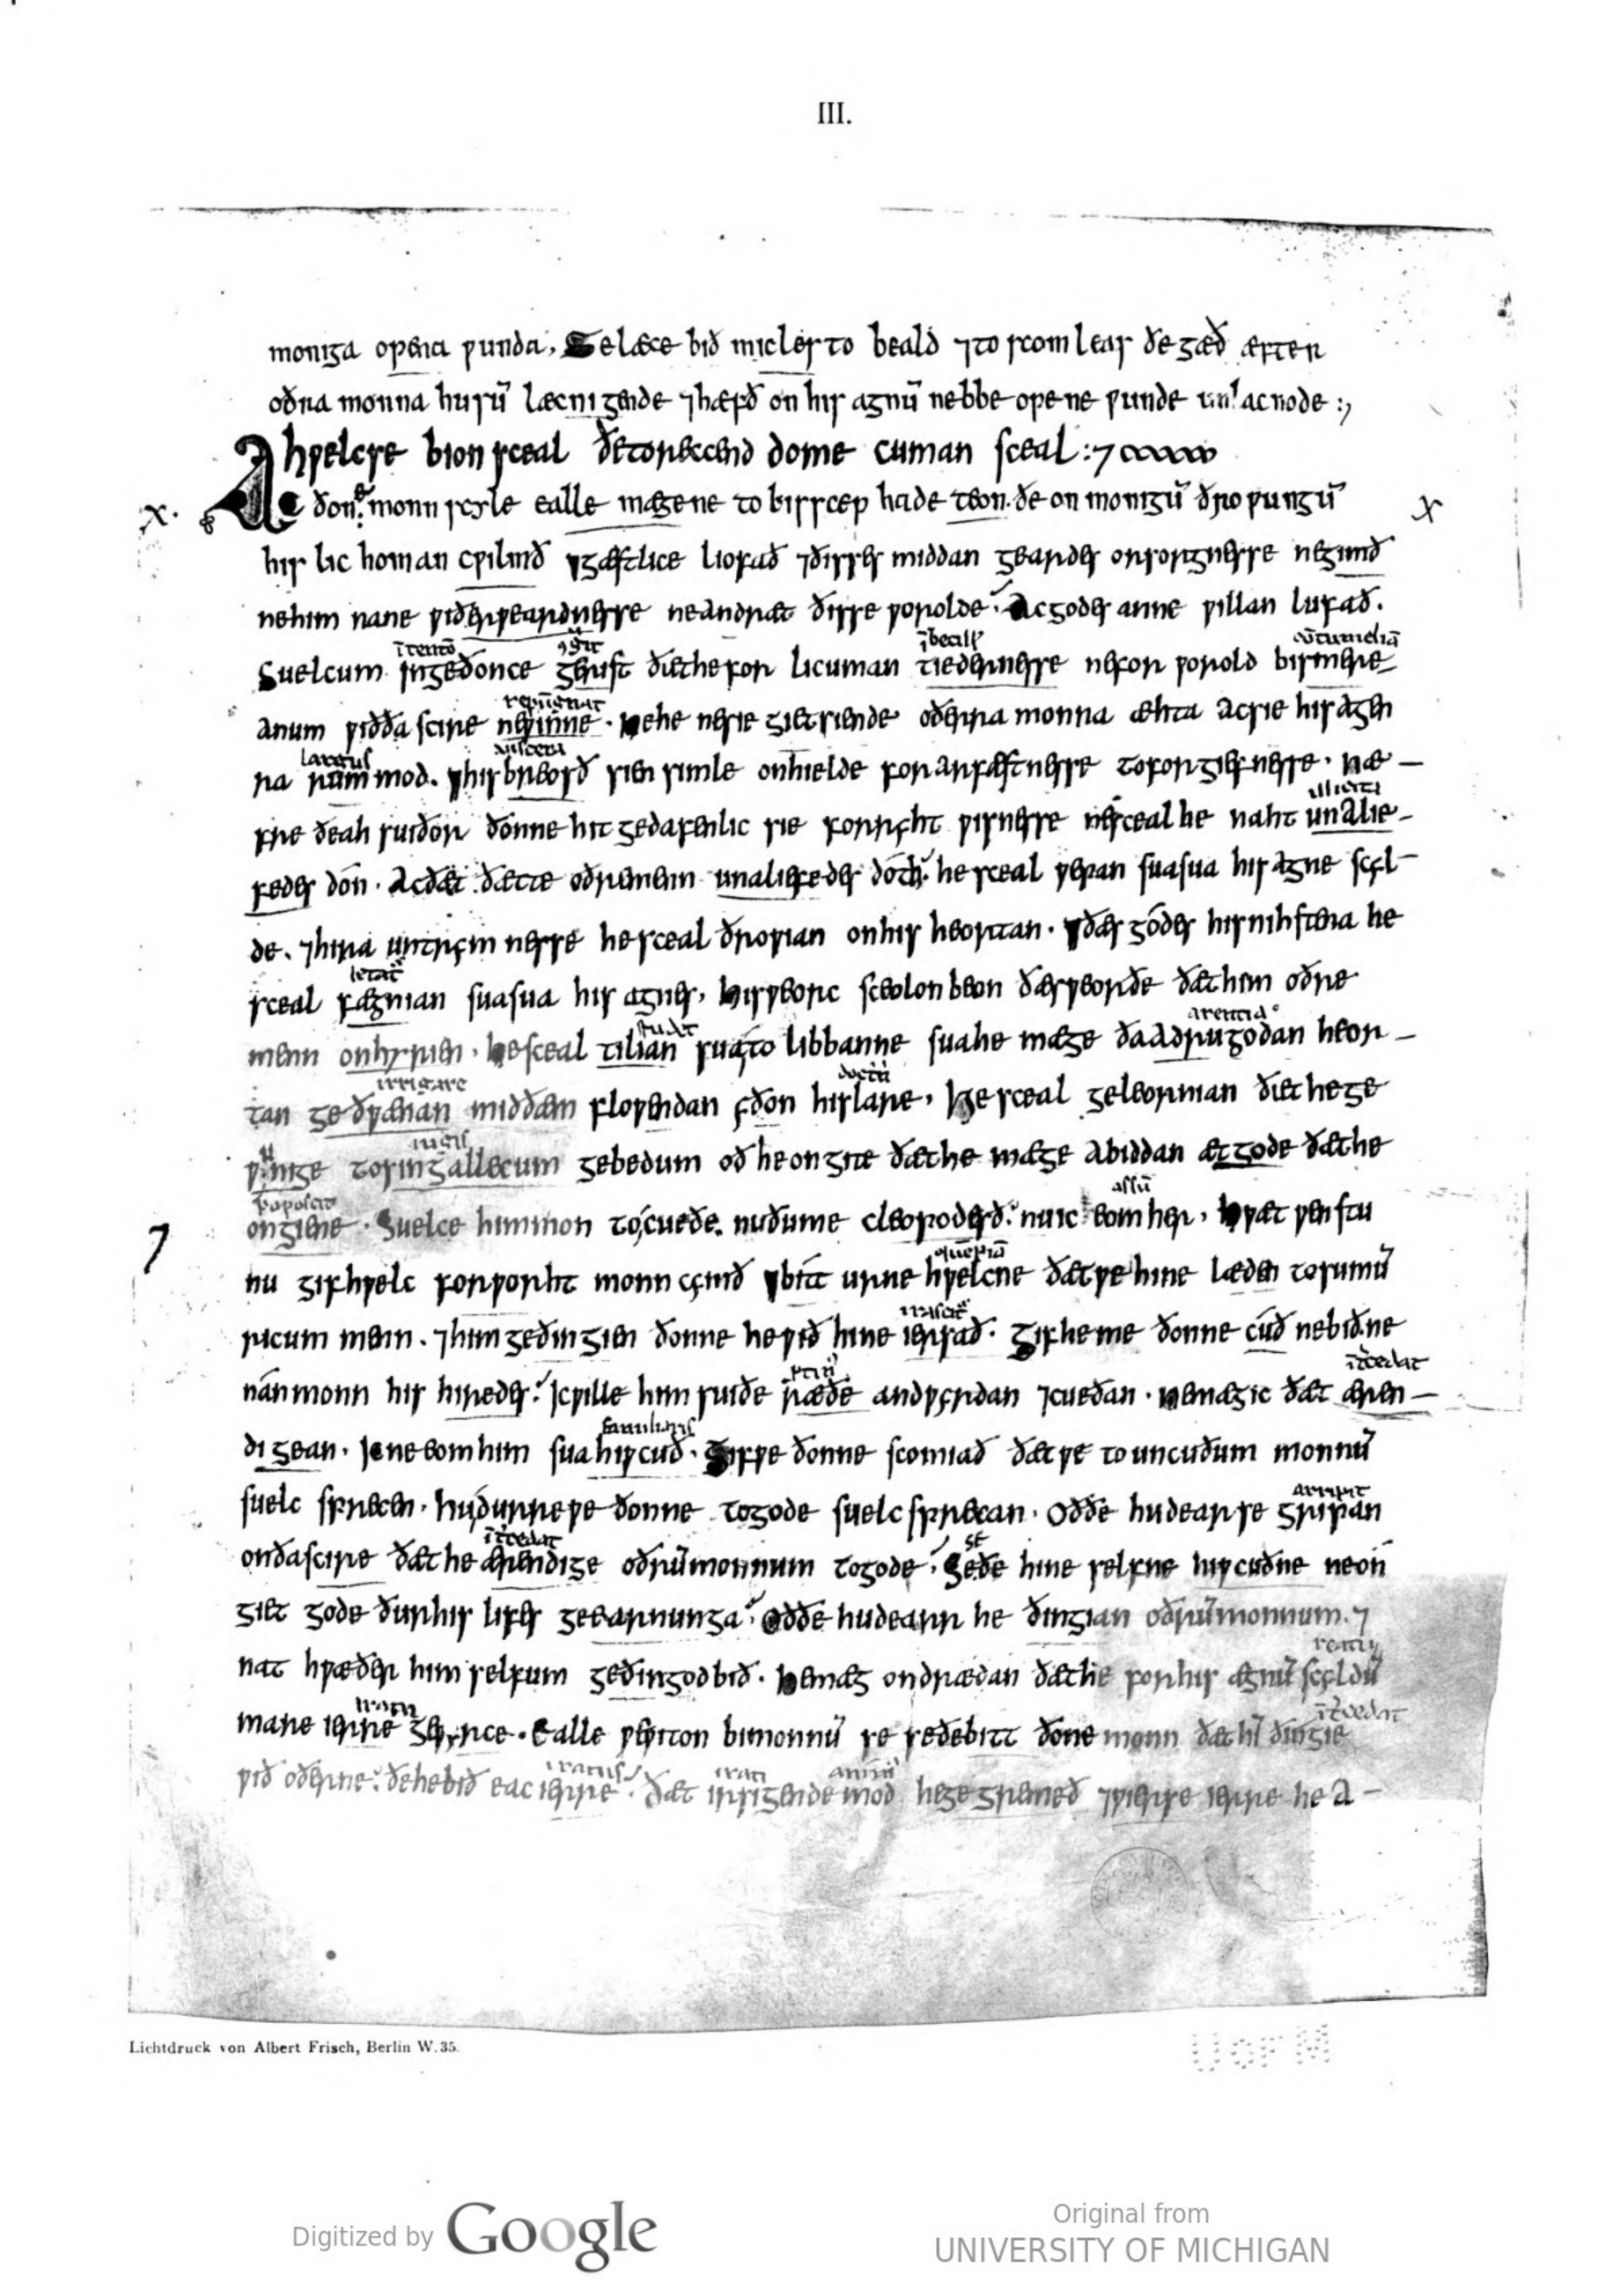 III.
moniga opena wunda, Se læce bið micles to beald ⁊ to scomleas ðe gæð æfter
oðra monna husū læcnigende ⁊ hæfð on his agnū nebbe opene wunde unlacnode :,
hwelcse bion sceal ðe to reccend dome cuman sceal :⁊
x. Ac ðone monn scyle ealle mægene to bisscep hade teon. ðe on monigū ðrowungū x
his lichoman cwilmð ⁊ gæstlice liofað ⁊ ðisses middangeardes orsorgnesse ne gimð
ne him nane wiðerweardnesse ne andræt ðisse worolde. Ac godes anne willan lufað.
Suelcum ingeðonce gerist ðæt he for licuman tiedernesse ne for worold bismere
anum wið ða scire ne winne. Ne he ne sie gietsiende oðerra monna æhta ac sie his agen
largus
ra rum mod. ⁊ his breosð sien simle onhielde for arfæstnesse to forgiefnesse. næ-
fre ðeah suiðor ðonne hit gedafenlic sie for ryht wisnesse ne sceal he naht unalie-
fedes dón. Ac ðæt ðætte oðre menn unaliefedes dóð he sceal wepan suasua his agne scyl-
de. ⁊ hira untrymnesse he sceal ðrowian on his heortan. ⁊ ðæs gódes his nihstena he
sceal fægnian suasua his agnes, his weorc sceolon beon ðæs weorðe ðæt him oðre
menn onhyrien. he sceal tilian sua to libbanne sua he mæge ða adrugodan heor-
irrigare
tan geðwænan mid ðæm flowendan yðon his lare, He sceal geleornian ðæt he ge
wunige to singallecum gebedum oð he ongite ðæt he mæge abiddan æt gode ðæt he
ongiene. Suelce him mon tocueðe. nu ðu me cleopodesð. nu ic eom her, hwæt wenstu
⁊ nu gif hwelc forworht monn cymð ⁊ bitt urne hwelcne ðæt we hine læden to sumū
ricum menn. ⁊ him geðingien ðonne he wið hine iersað. Gif he me ðonne cúð ne bið. ne
nán monn his hiredes. Ic wille him suiðe ræðe andwyrdan ⁊ cueðan. ne mæg ic ðæt æren-
di gean. Ic ne eom him sua hiwcuð. Gif we ðonne scomiað ðæt we to uncuðum monnū
suelc sprecen. hu durre we ðonne to gode suelc sprecan. Oððe hu dear se gripan
on ða scire ðæt he ærendige oðrū monnum to gode. Se ðe hine selfne hiwcuðne ne on
giet gode ðurh his lifes geearnunga. Oððe hu dearr he ðingian oðrū monnum. ⁊
nat hwæðer him selfum geðingod bið. he mæg ondrædan ðæt he for his ægnū scyldū
mare ierre gewyrce. Ealle we witon bi monnū se se ðe bitt ðone monn ðæt hī ðingie
wið oðerne. ðe he bið eac ierre. ðæt irsigende mod he gegremeð ⁊ wierse ierre he a-
Lichtdruck von Albert Frisch, Berlin W. 35.
U OF M
Digitized by Google
Original from
UNIVERSITY OF MICHIGAN